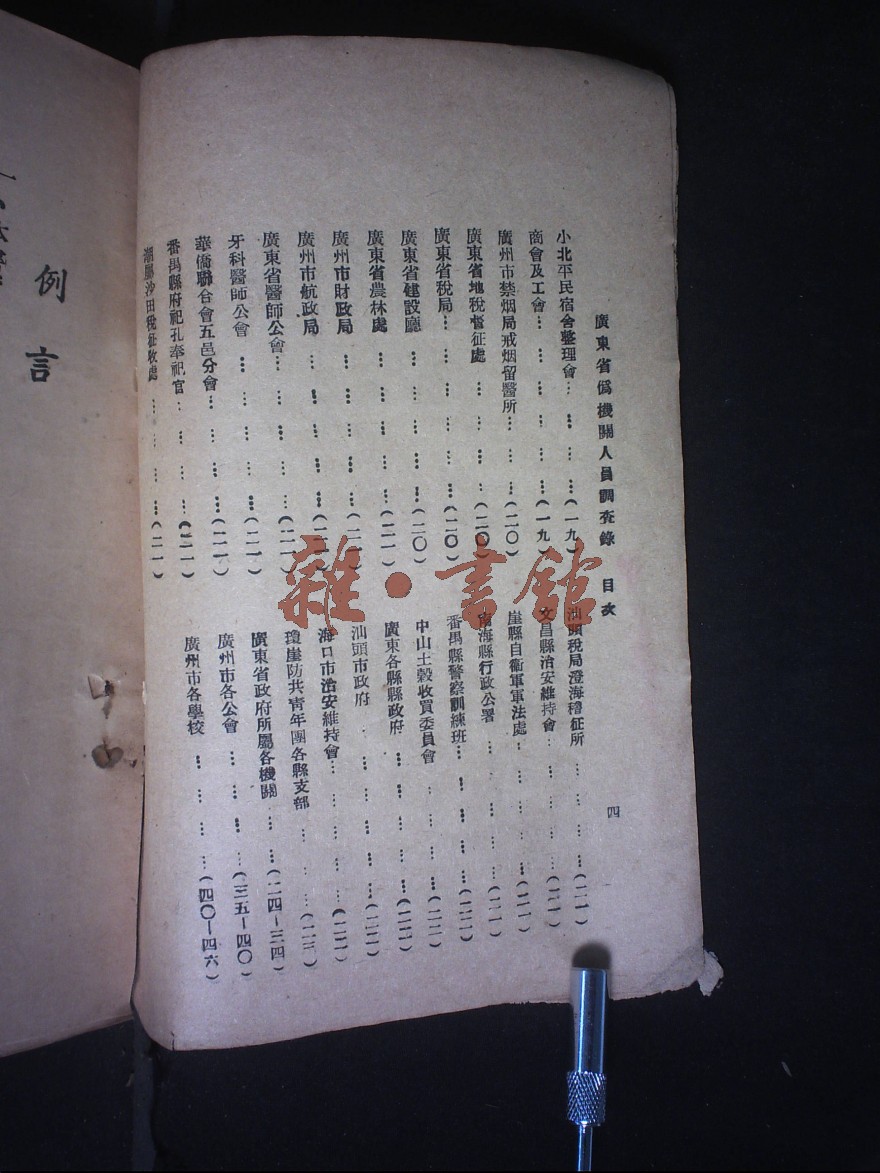 廣東省僞機關人員調查錄 目次 四
小北平民宿舍整理會…………(一九)
商會及工會…………(一九)
廣州市禁烟局戒烟留醫所…………(二〇)
廣東省地稅督征處…………(二〇)
廣東省稅局…………(二〇)
廣東省建設廳…………(二〇)
廣東省農林處…………(二一)
廣州市財政局…………(二一)
廣州市航政局…………(二一)
廣東省醫師公會…………(二一)
牙科醫師公會…………(二一)
華僑聯合會五邑分會…………(二一)
番禺縣府祀孔奉祀官…………(二一)
潮屬沙田稅征收處…………(二一)
汕頭稅局澄海稽征所…………(二一)
文昌縣治安維持會…………(二一)
崖縣自衞軍軍法處…………(二一)
南海縣行政公署…………(二一)
番禺縣警察訓練班…………(二二)
中山土穀收買委員會…………(二二)
廣東各縣縣政府…………(二二)
汕頭市政府…………(二二)
海口市治安維持會…………(二二)
瓊崖防共青年團各縣支部…………(二三)
廣東省政府所屬各機關…………(二四-三四)
廣州市各公會…………(三五-四〇)
廣州市各學校…………(四〇-四六)
例言
雜·書館